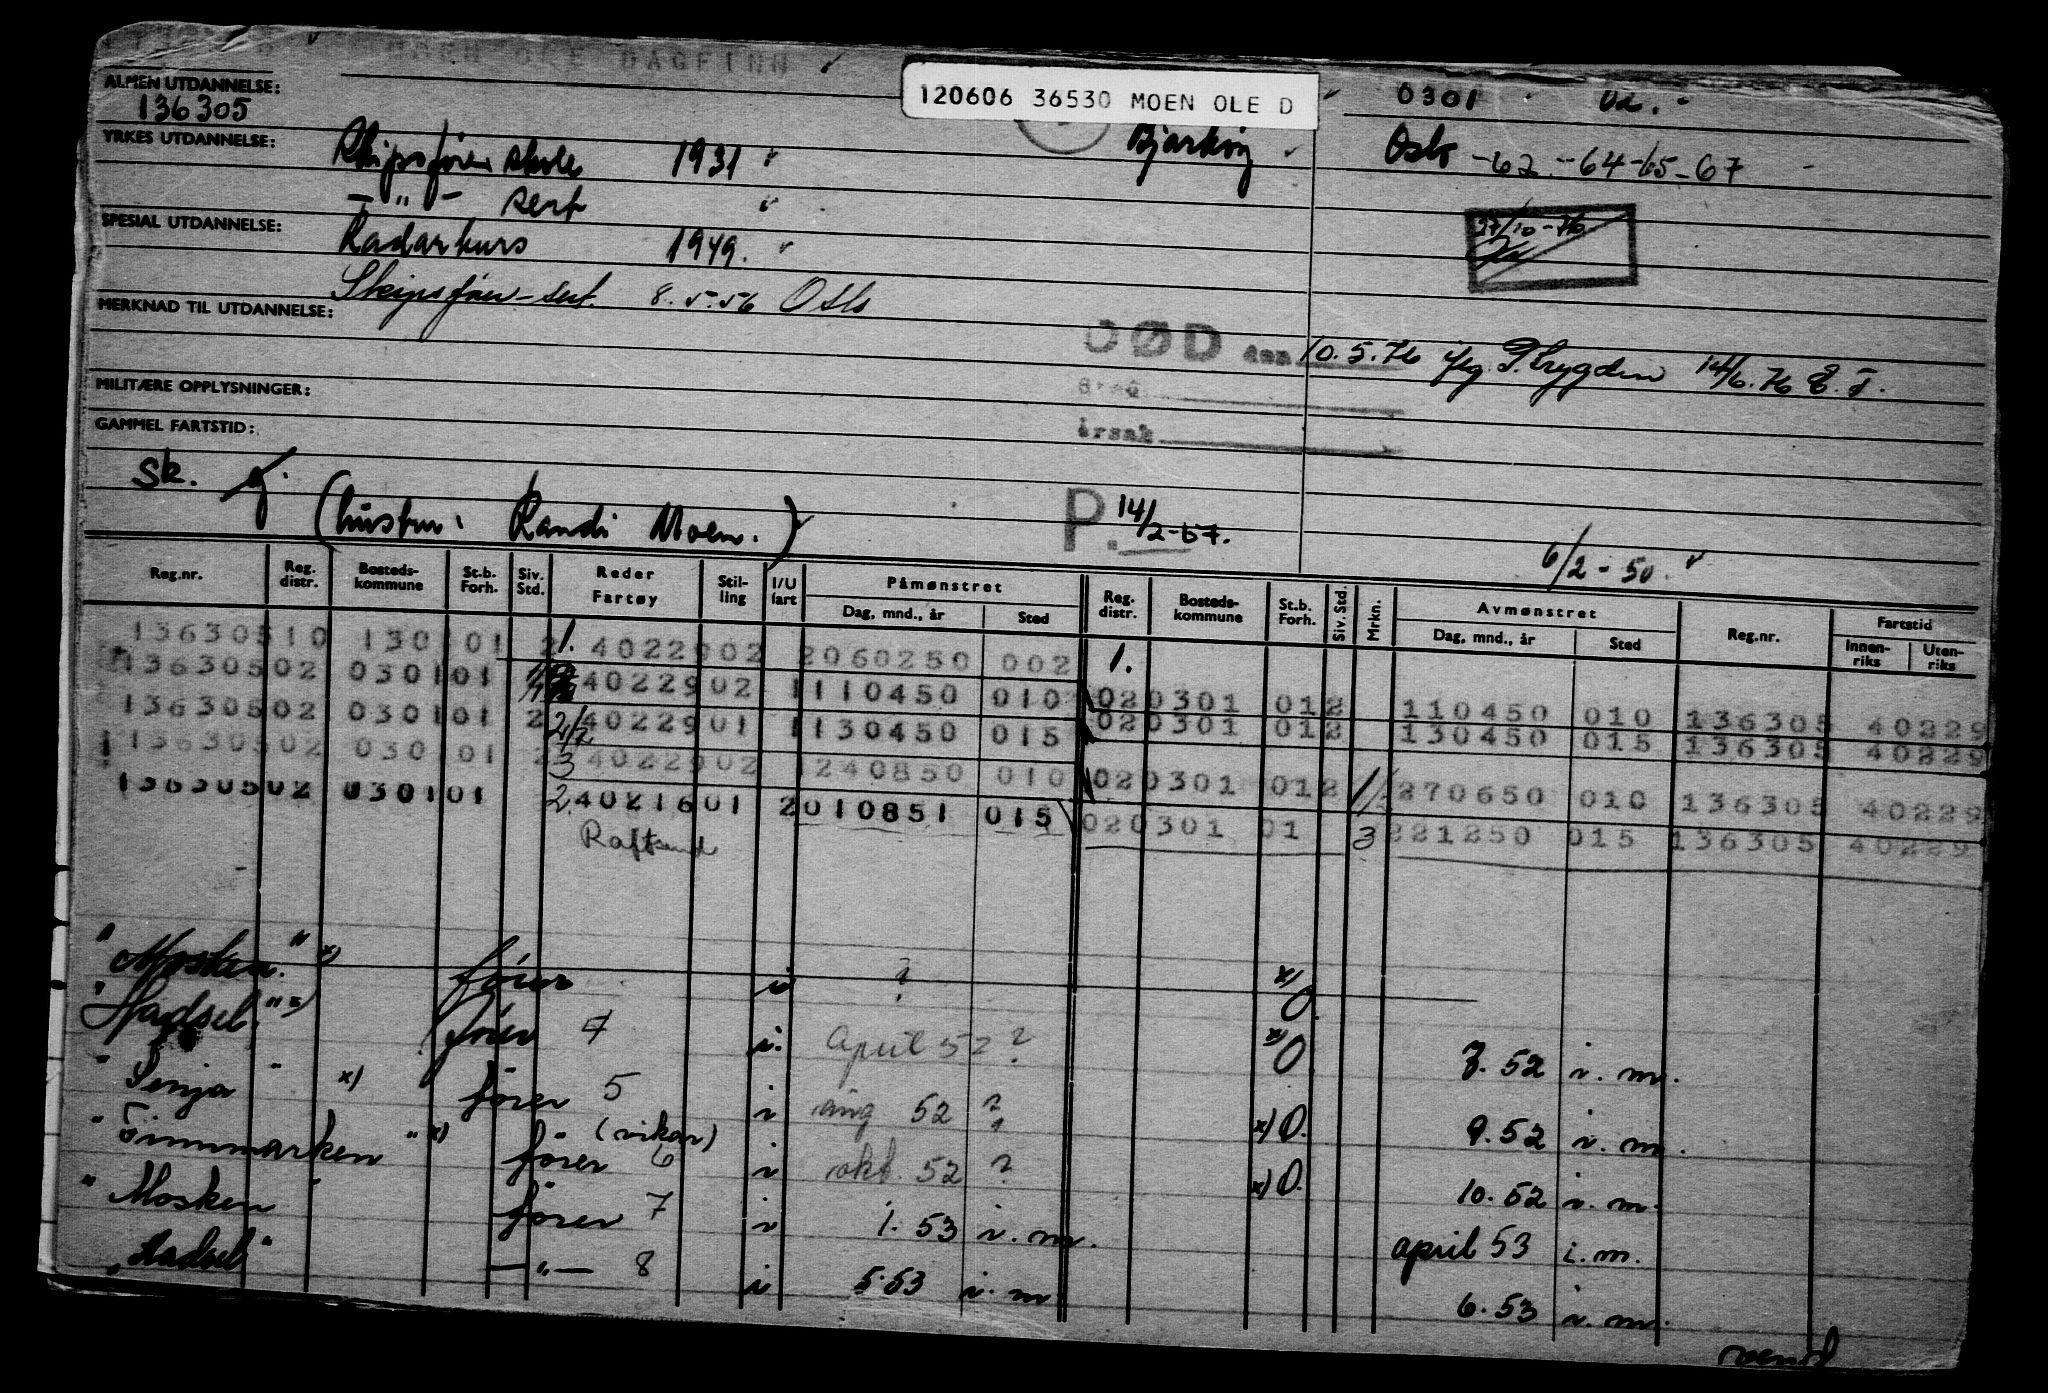 MOEN OLE DAGFINN
120606 36530 MOEN OLE D
0301
ALMEN UTDANNELSE:
136305
YRKES UTDANNELSE:
Skipsførerskole 1931
Bjarkøy
Oslo -62 -64-65-67
— " — sert
SPESIAL UTDANNELSE:
Radarkurs 1949.
27/10-76
Skipsfører-sert. 8.5.56 Oslo
MERKNAD TIL UTDANNELSE:
DØD den 10.5.76 iflg. T.trygden 14/6.76
MILITÆRE OPPLYSNINGER:
årsak
GAMMEL FARTSTID:
Sk.
(hustru: Randi Moen.)
P. 14/2-67.
6/2-50.
Reg.nr. Reg. distr. Bosteds-kommune St.b. Forh. Siv. Std. Reder Fartøy Stil-ling I/U fart Påmønstret Dag, mnd., år Sted Reg. distr. Bosteds-kommune St.b. Forh. Siv. Std. Mrkn. Avmønstret Dag, mnd., år Sted Reg.nr. Fartstid Innen-riks Uten-riks
13630510 130101 2 1. 4022902 2060250 002 1.
13630502 030101 4022902 1110450 010 020301 012 110450 010 136305 40229
13630502 030101 2 4022901 1130450 015 020301 012 130450 015 136305 40229
13630502 030101 2 3 4022902 240850 010 020301 012 270650 010 136305 40229
13630502 030101 2. 4021601 2010851 015 020301 01 3 221250 015 136305 40229
Raftsund
"Mosken." x) fører i ? x) O.
"Hadsel." x) fører 4 i. april 52 ? x) O 7. 52 i. m.
"Senja" x) fører 5 i aug 52 ? x) O. 9. 52 i. m.
"Finnmarken" x) fører (vikar) 6 i okt. 52 ? x) O. 10. 52 i. m.
"Mosken" fører 7 i 1. 53 i. m. april 53 i. m.
"Hadsel" — " — 8 i 5.53 i. m 6. 53 i. m.
vend